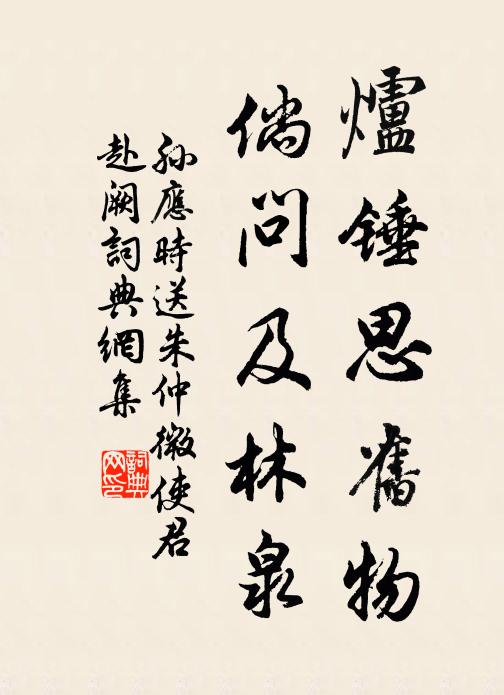 爐錘思舊物
倘問及林泉
孫應時送朱仲微使君
赴闕詞典網集
詞典
网印